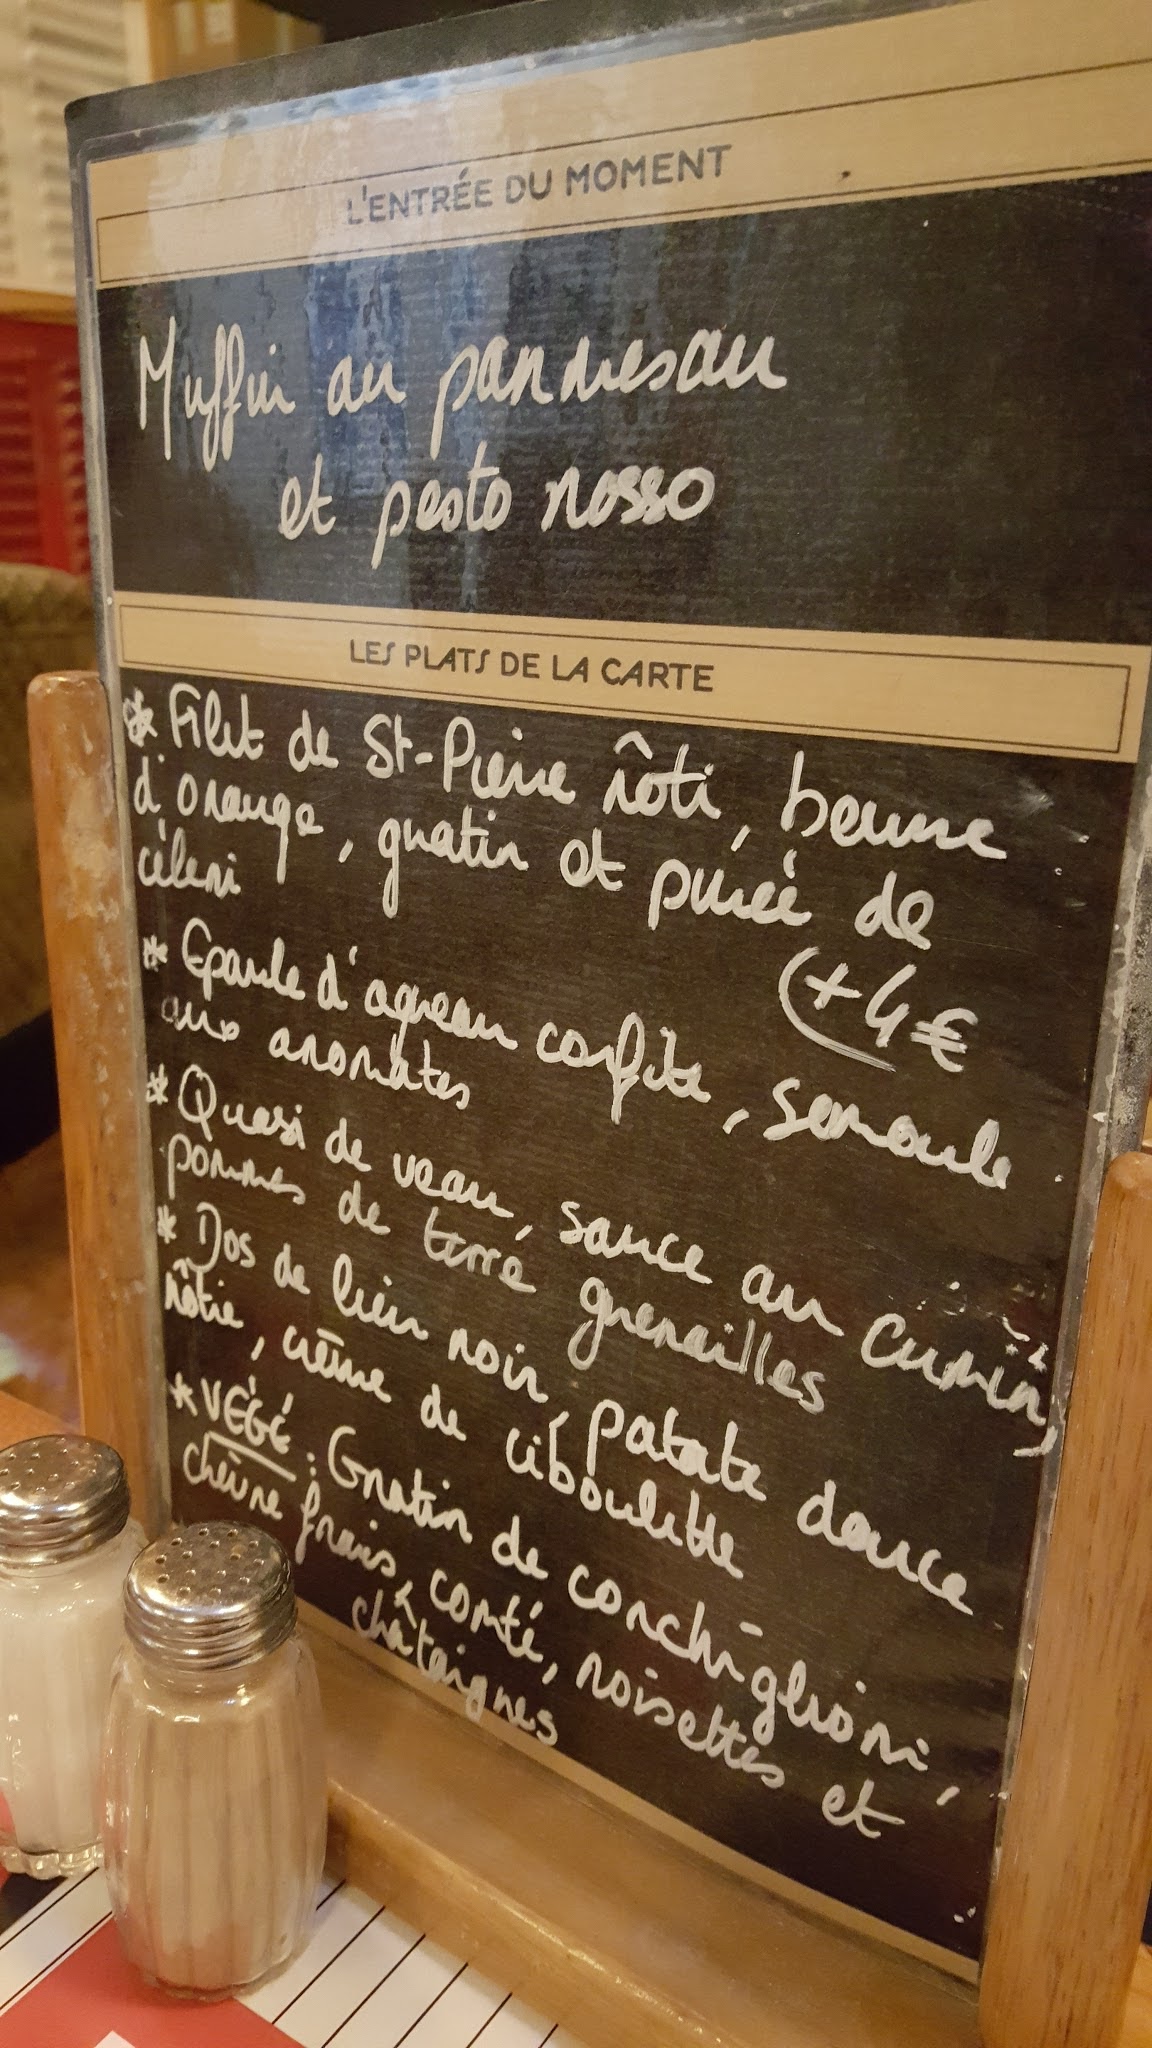 L'ENTRÉE DU MOMENT
Muffin au parmesan
et pesto rosso
LES PLATS DE LA CARTE
* Filet de St-Pierre rôti, beurre
d'orange, gratin et purée de
céleri
(+4€
* Epaule d'agneau confite, semoule
aux aromates
* Quasi de veau, sauce au cumin,
pommes de terre grenailles
* Dos de lieu noir, patate douce
rôtie, crème de ciboulette
* VÉGÉ : Gratin de conchiglioni,
chèvre frais, comté, noisettes et
châtaignes